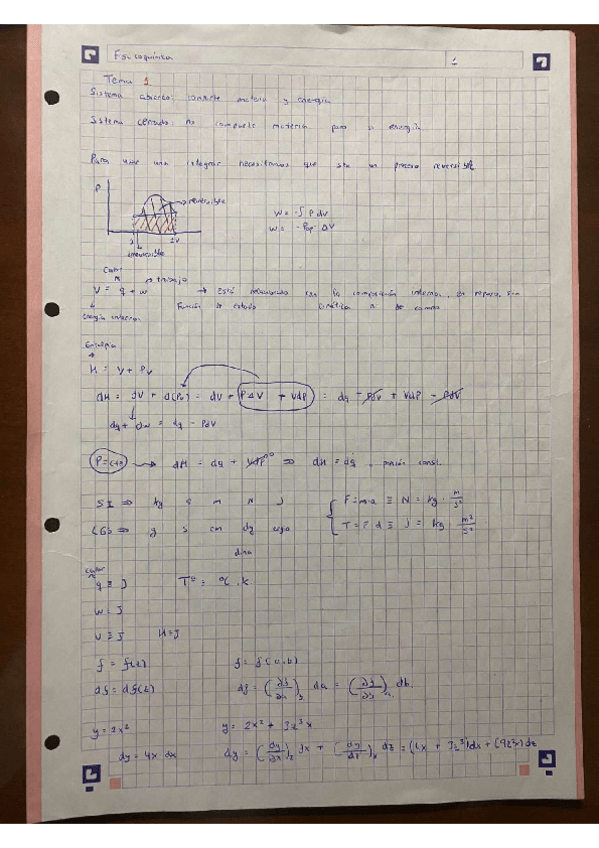 Fisicoquímica 1
Tema 1
Sistema abierto: comparte materia y energía
Sistema cerrado: no comparte materia pero si energía
Para usar una integral necesitamos que sea un proceso reversible
P
reversible
W = -∫ P dV
W = -Pop · ΔV
irreversible
Calor
trabajo
V = q + w → Está relacionado con la composición interna, en reposo, sin
Energía interna Función de estado de campo
Entalpía
H = V + PV
dH = dV + d(PV) = dV + (PdV + VdP) = dq - PdV + VdP + PdV
dq + dw = dq - PdV
P = cte → dH = dq + VdP⁰ ⇒ dH = dq, presión const.
SI ⇒ kg s m N J
F = m·a ≡ N = kg · m/s²
CGS ⇒ g s cm dy ergo
T = F·d ≡ J = kg · m²/s²
dina
calor
q ≡ J T° = °C, K
W = J
U ≡ J H = J
f = f(t) f = f(a,b)
df = df(t) df = (∂f/∂a)b da = (∂f/∂b)a db
y = 2x² y = 2x² + 3z³x
dy = 4x dx dy = (dy/dx)z dx + (dy/dz)x dz = (4x + 3z³)dx + (9z²x) dz